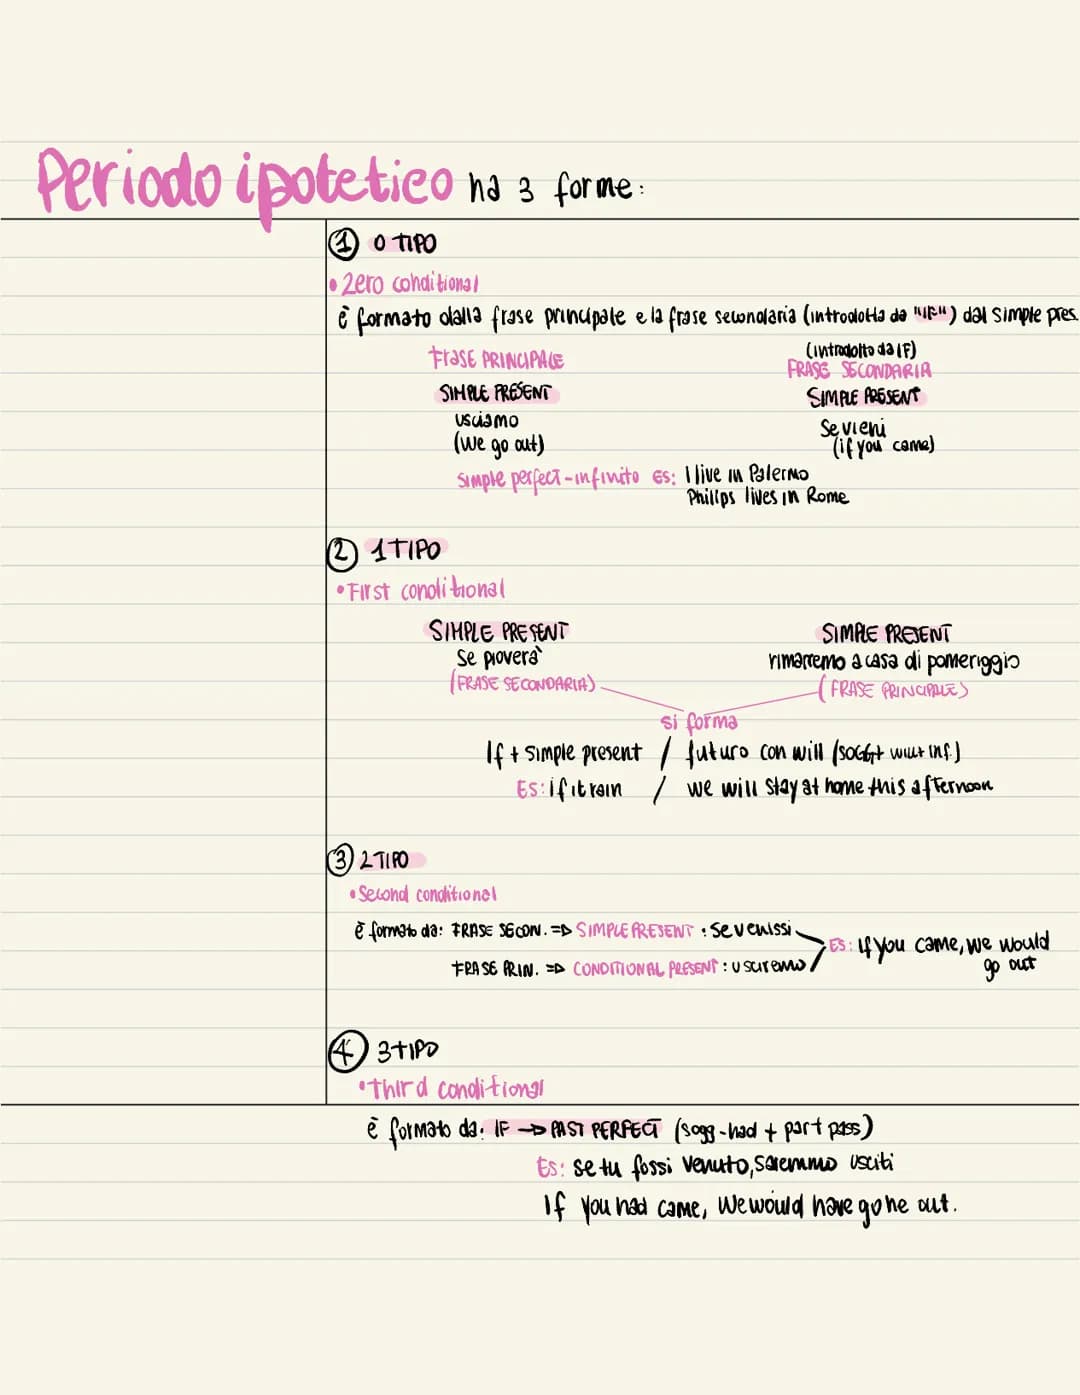 Periodo ipotetico ha 3 forme:
1 0 TIPO
• Zero conditional
è formato dalla frase principale e la frase secondaria (introdotta da "IF") dal simple pres.
FRASE PRINCIPALE
SIMPLE PRESENT
usciamo
(We go out)
(introdotto da IF)
FRASE SECONDARIA
SIMPLE PRESENT
Se vieni
(if you came)
Simple perfect-infinito Es: I live in Palermo
Philips lives in Rome
2 1 TIPO
• First conditional
SIMPLE PRESENT
Se pioverà
(FRASE SECONDARIA)
SIMPLE PRESENT
rimarremo a casa di pomeriggio
(FRASE PRINCIPALE)
si forma
If + Simple present / futuro con will (SOGG+ will+ inf.)
Es: if it rain / we will stay at home this afternoon
3 2 TIPO
• Second conditional
è formato da: FRASE SECON. => SIMPLE PRESENT : se venissi
FRASE PRIN. => CONDITIONAL PRESENT : usciremo
ES: If you came, we would
go out
4 3 TIPO
• Third conditional
è formato da: IF → PAST PERFECT (sogg-had + part pass)
Es: se tu fossi venuto, saremmo usciti
If you had came, We would have gone out.